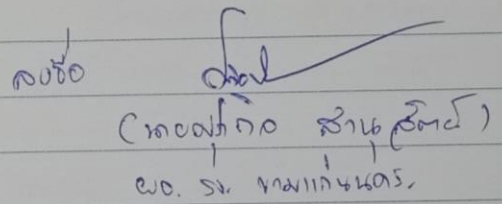 ลงชื่อ
(นายสุกิจ สานุสัตย์)
ผอ. รร. ขามแก่นนคร.